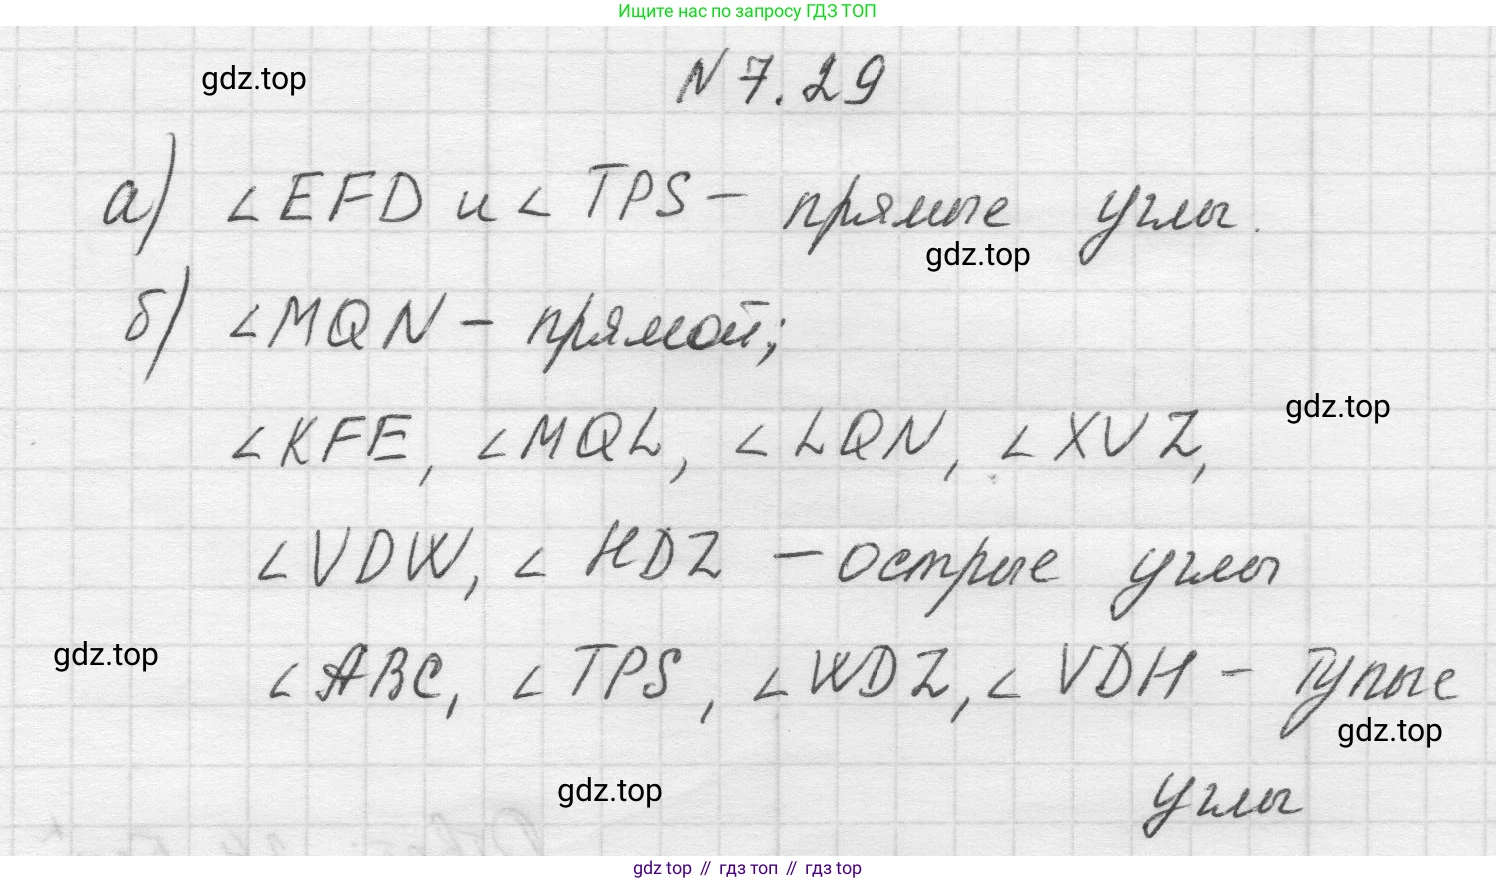 Ищите нас по запросу ГДЗ ТОП
N 7.29
gdz.top
а) ∠EFD и ∠TPS – прямые углы.
gdz.top
б) ∠MQN – прямой;
gdz.top
∠KFE, ∠MQL, ∠LQN, ∠XVZ,
∠VDW, ∠HDZ – острые углы
gdz.top
∠ABC, ∠TPS, ∠WDZ, ∠VDH – тупые
gdz.top
gdz.top
углы
gdz top // гдз топ // gdz.top